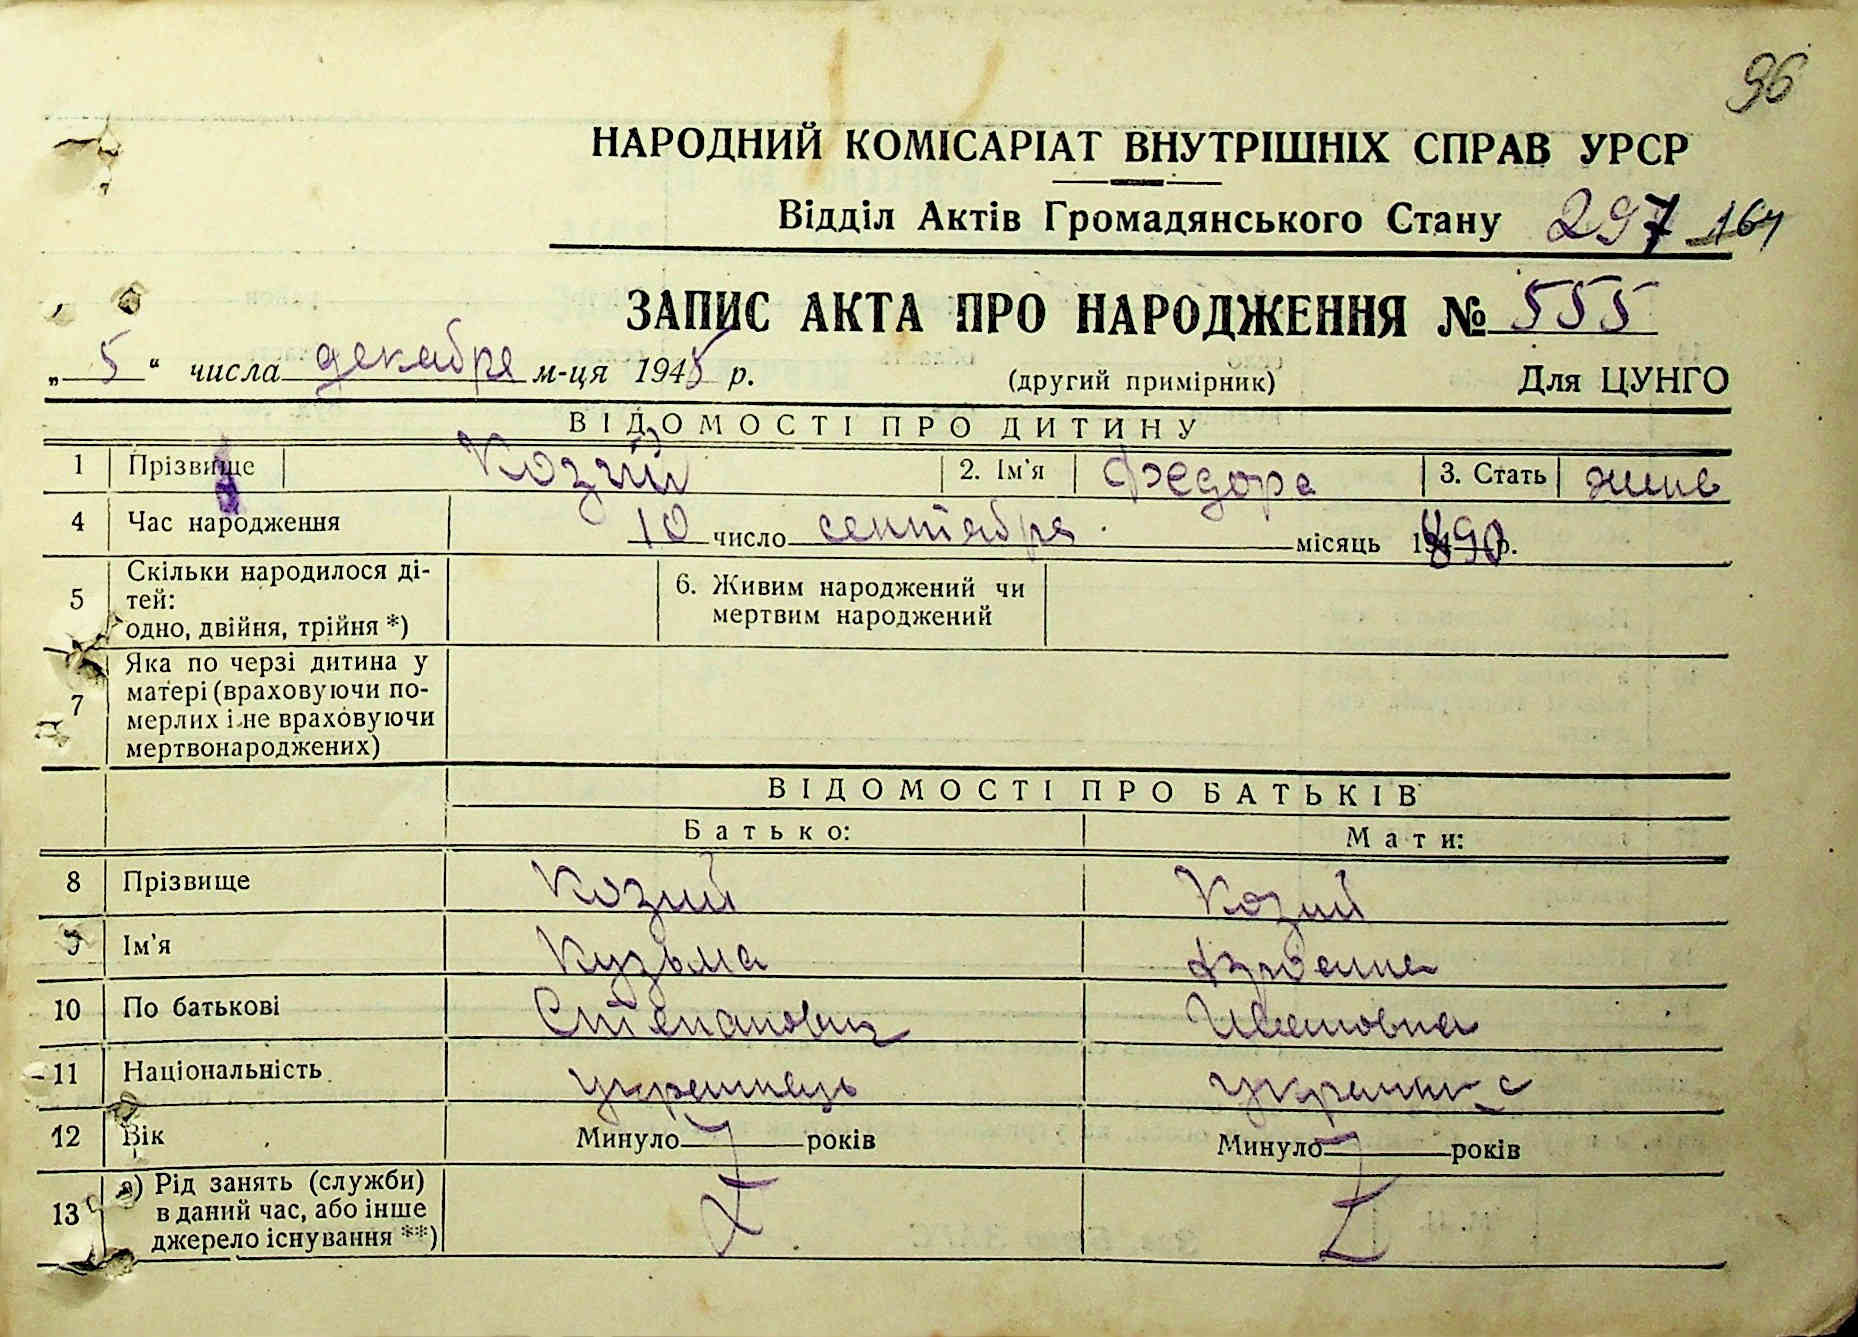 96
НАРОДНИЙ КОМІСАРІАТ ВНУТРІШНІХ СПРАВ УРСР
Відділ Актів Громадянського Стану 297 164
ЗАПИС АКТА ПРО НАРОДЖЕННЯ № 555
„ 5 “ числа декабря м-ця 1945 р. (другий примірник) Для ЦУНГО
ВІДОМОСТІ ПРО ДИТИНУ
1 Прізвище Козий 2. Ім'я Федора 3. Стать жине
4 Час народження 10 число сентября місяць 1890 р.
5 Скільки народилося ді-
тей:
одно, двійня, трійня *)
6. Живим народжений чи
мертвим народжений
7 Яка по черзі дитина у
матері (враховуючи по-
мерлих і не враховуючи
мертвонароджених)
ВІДОМОСТІ ПРО БАТЬКІВ
Батько: Мати:
8 Прізвище Козий Козий
9 Ім'я Кузьма
10 По батькові Степанович Ивановна
11 Національність украинець украинка
12 Вік Минуло років Минуло років
13 а) Рід занять (служби)
в даний час, або інше
джерело існування **)